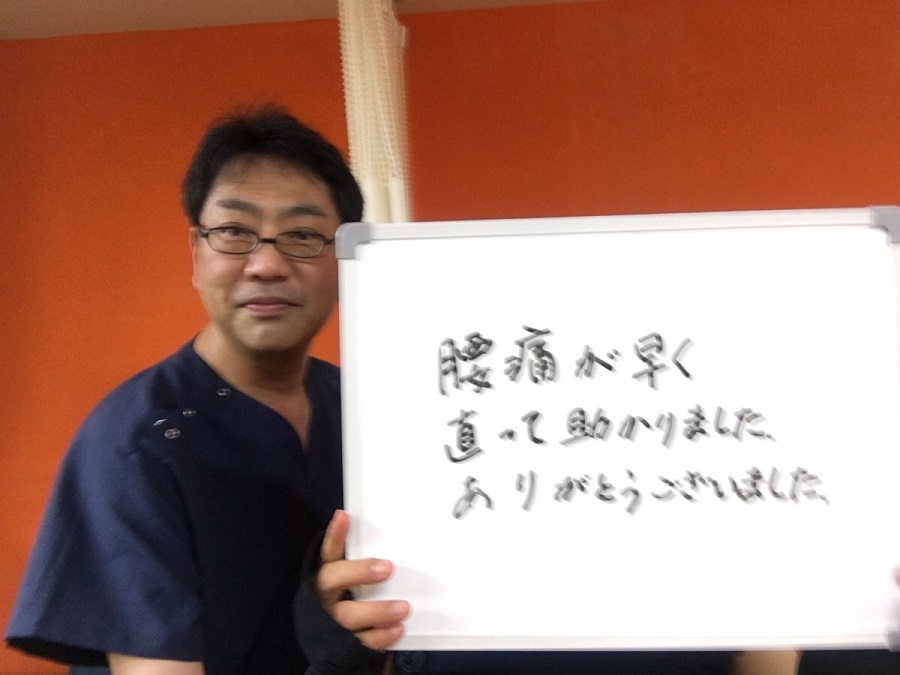 腰痛が早く
直って助かりました。
ありがとうございました。